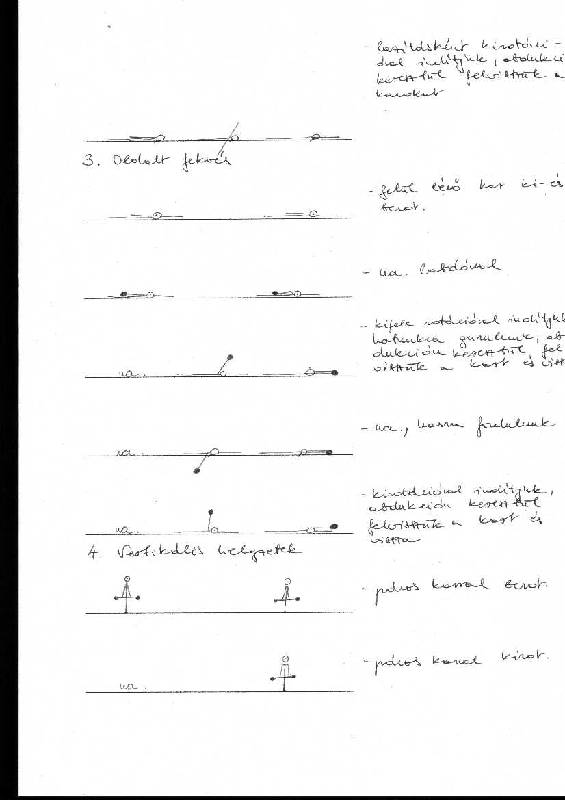 - lazításként kirotáci-
óval indítjuk, abdukci
keresztül felvisszük a
karokat
3. Oldalt fekvés
- felül lévő kar ki- és
berot.
- ua. labdával
- kifele rotációval indítjuk
hátunkra gurulunk, ab
dukción keresztül, fel
visszük a kart és viss
ua.
- ua., hasra fordulunk
ua.
- kirotációval indítjuk,
abdukción keresztül
felvisszük a kart és
vissza
ua.
4. Vertikális helyzetek
- páros karral berot.
- páros karral kirot.
ua.